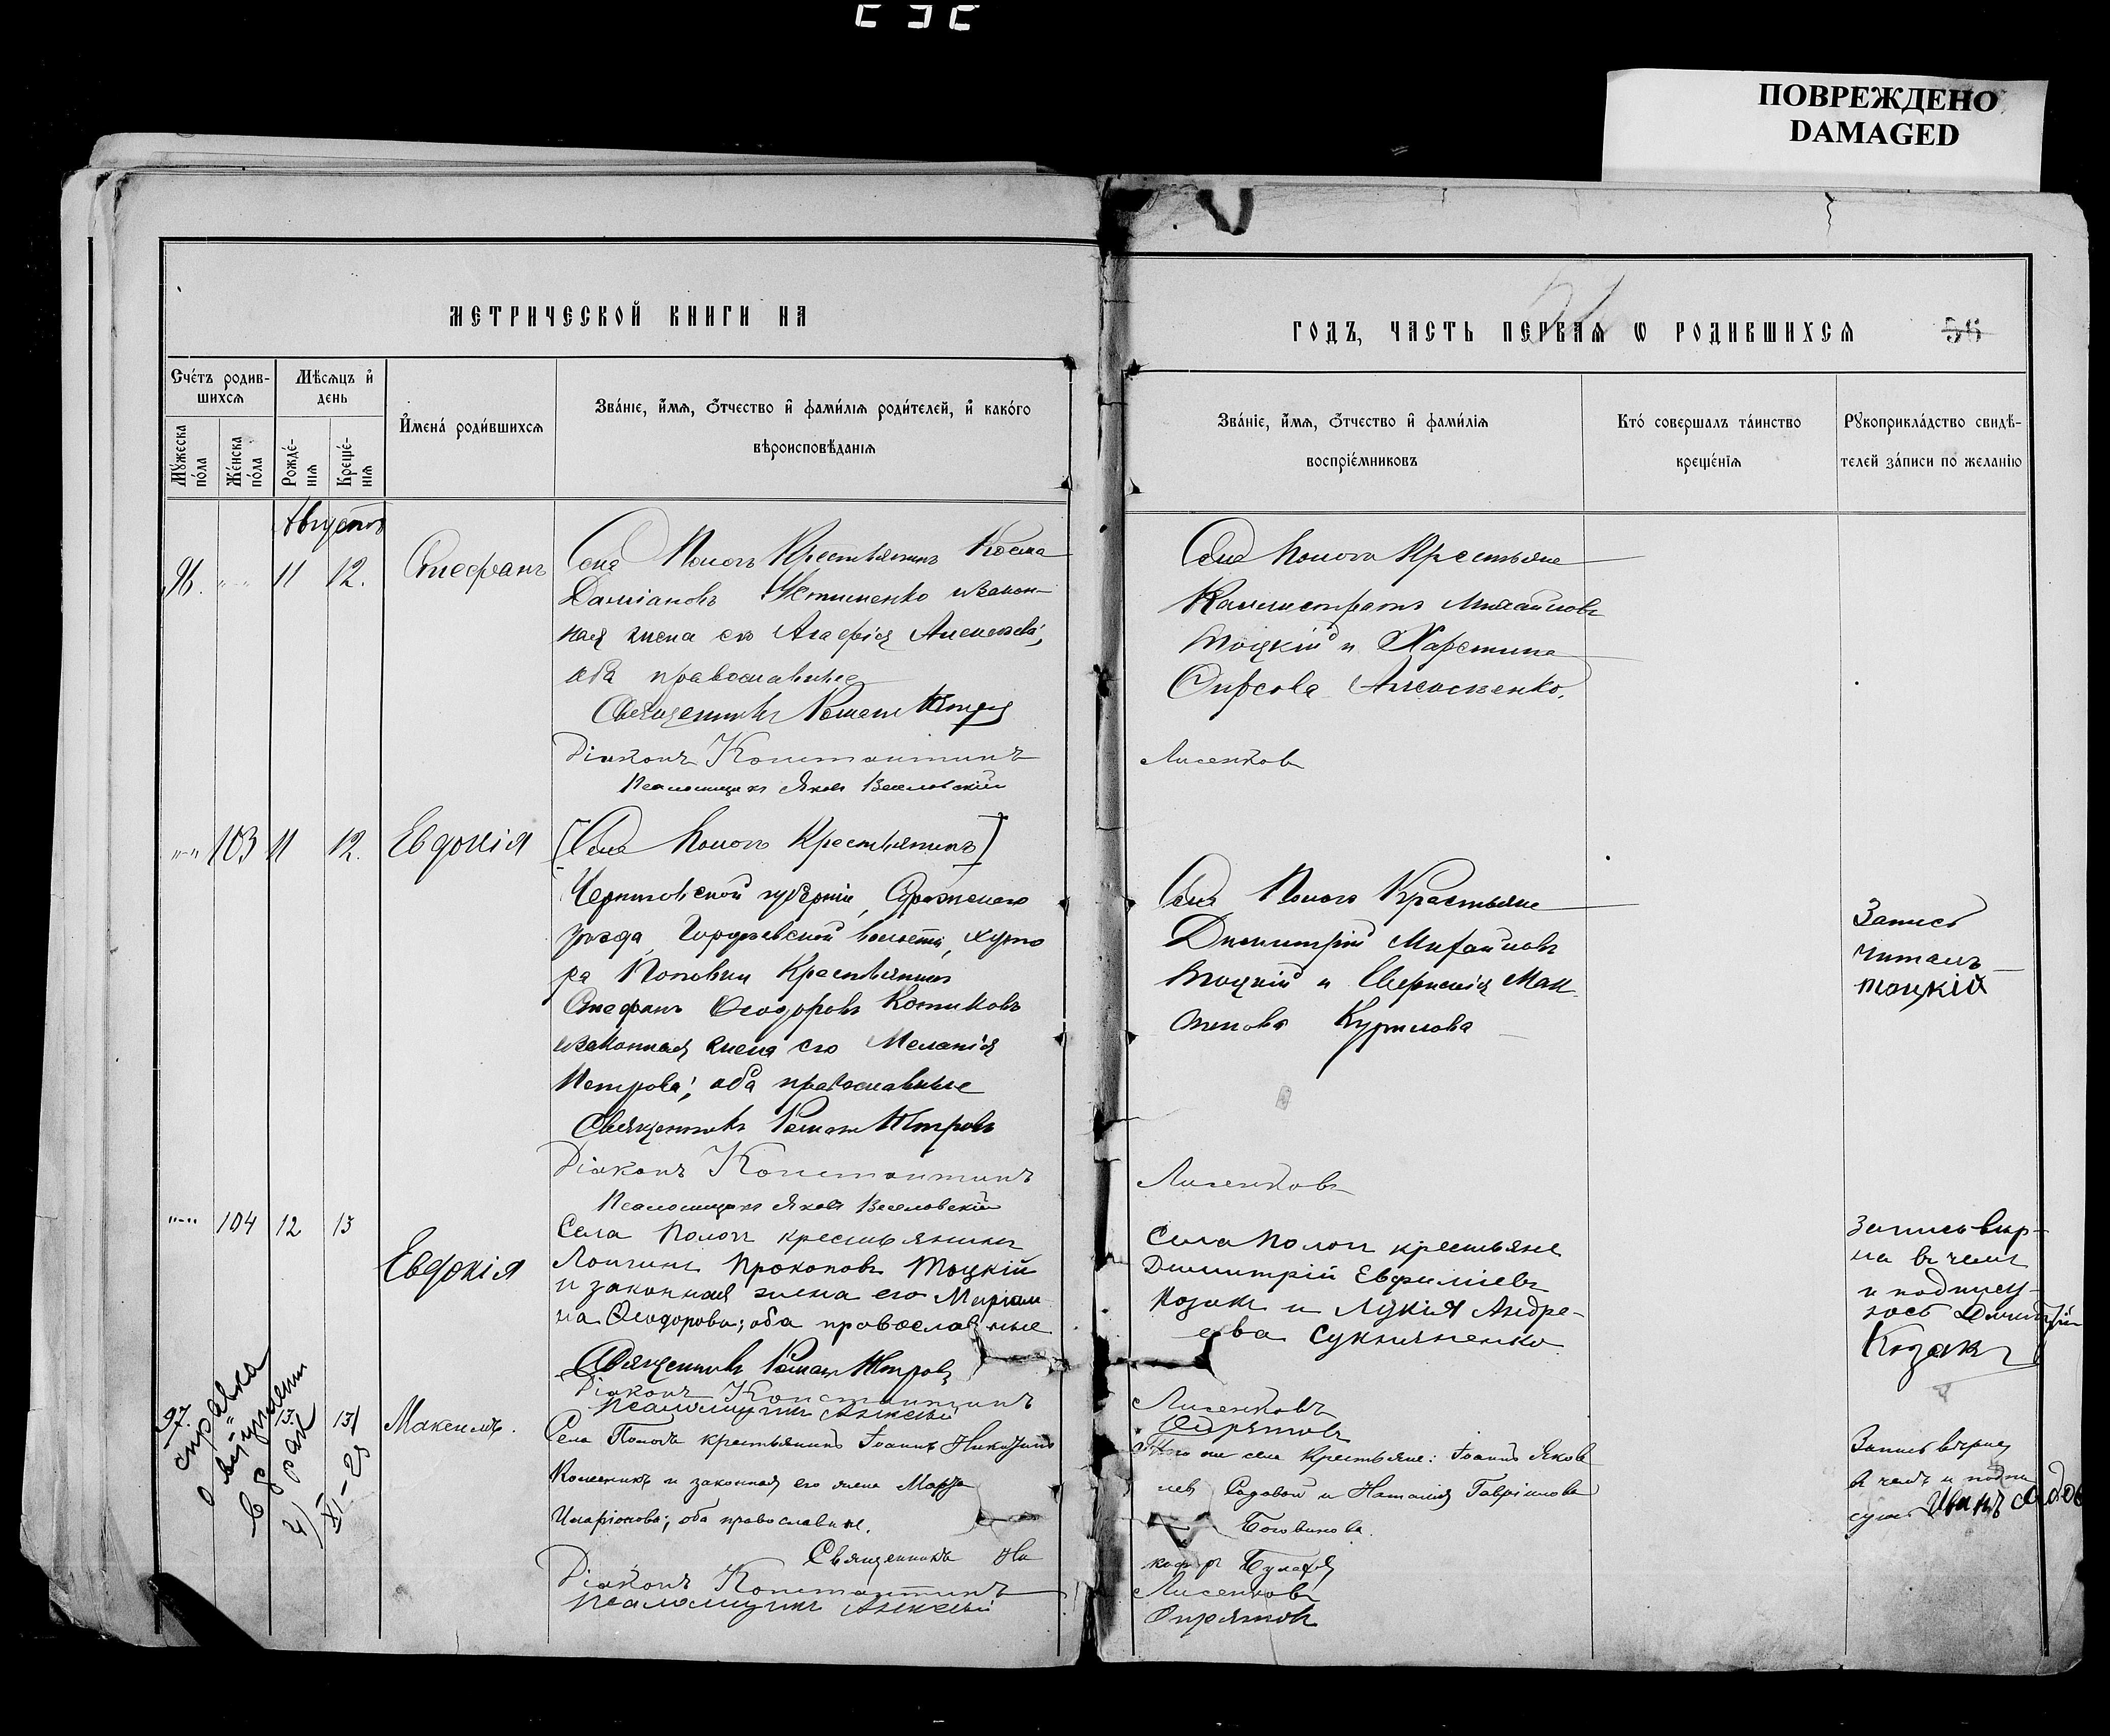 ПОВРЕЖДЕНО
DAMAGED
МЕТРИЧЕСКОЙ КНИГИ НА
ГОДЪ, ЧАСТЬ ПЕРВАЯ Ѡ РОДИВШИХСЯ
56
Сче́тъ родив-
шихся
Мѣсяцъ и҆
день
Му́жеска по́ла
Же́нска по́ла
Рожде́-
нія
Креще́-
нія
И҆мена́ роди́вшихся
Зва́ніе, и҆́мя, ѻ҆́тчество и҆ фами́лія роди́телей, и҆ како́го
вѣроисповѣ́данія
Зва́ніе, и҆́мя, ѻ҆́тчество и҆ фами́лія
воспріе́мниковъ
Кто́ соверша́лъ та́инство
креще́нія
Рукоприкла́дство свидѣ́-
телей за́писи по жела́нію
Августъ
96. 11 12. Стефанъ
Села Пологъ Крестьянинъ Косма
Даміановъ Устименко и закон-
ная жена его Агафія Алексѣева;
оба православные
Священникъ Романъ Петровъ
Діаконъ Константинъ
Псаломщикъ Яковъ Веселовскій
Села Пологъ Крестьяне
Каллистратъ Михайловъ
Тоцкій и Харитина
Фирсова Алексѣенко.
Лисенковъ
103 11 12. Евдокія
[Села Пологъ Крестьянинъ]
Черниговской губерніи, Суражскаго
уѣзда, Городечевской волости, хуто
ра Поповки Крестьянинъ
Стефанъ Ѳеодоровъ Котиковъ
и законная жена его Меланія
Петрова; оба православные
Священникъ Романъ Петровъ
Діаконъ Константинъ
Псаломщикъ Яковъ Веселовскій
Села Пологъ Крестьяне
Димитрій Михайловъ
Тоцкій и Евфимія Мак
Курилова
Запись
читалъ
Тоцкій
Лисенковъ
104 12 13
Евдокія
Села Пологъ крестьянинъ
Лонгинъ Прокоповъ Тоцкій
и законная жена его Маріам
на Ѳеодорова; оба православные
Священникъ Романъ Петровъ
Діаконъ Константинъ
Псаломщикъ Алексѣй
Села Пологъ крестьяне
Димитрій Евфиміевъ
Козакъ и Лукія Андре-
ева Сукманенко
Запись вѣр-
на в чемъ
и подпису-
юсь Дмитрій
Козакъ
Лисенковъ
Опрятовъ
97. 13. 13 Максимъ.
справка
о
в
XI-25
Села Пологъ крестьянинъ Іоаннъ Никитинъ
Колесникъ и законная его жена Марѳа
Иларіонова; оба православные.
Священникъ Ни
Діаконъ Константинъ
Псаломщикъ Алексѣй
Того же села крестьяне: Іоаннъ Яковле
невъ Садовой и Наталія Гавріилова
Боговикова.
каноръ Булахъ
Лисенковъ
Опрятовъ
Запись вѣрна
в чемъ и подпи
суюсь Иванъ Садов